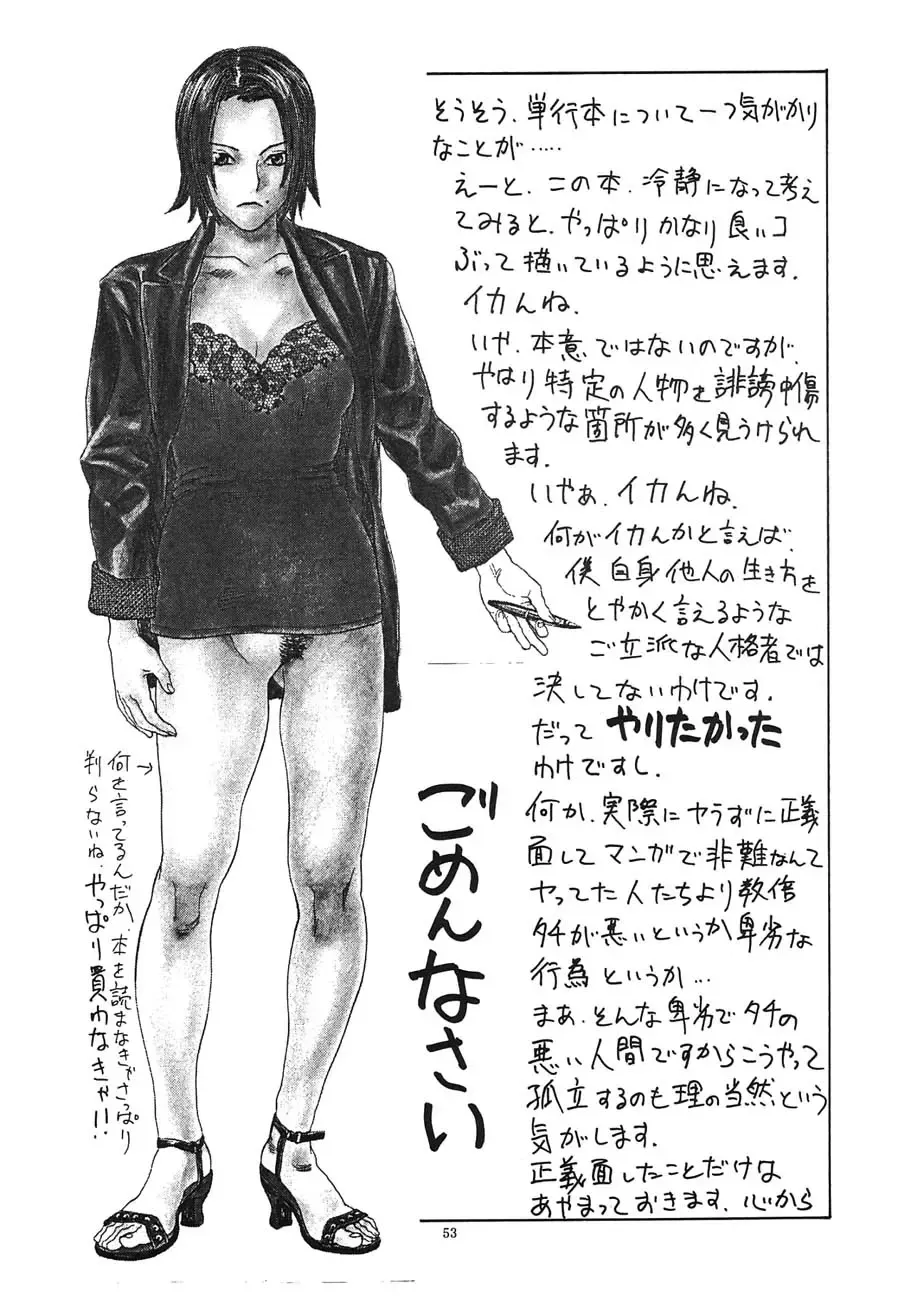 そうそう、単行本について一つ気がかり
なことが‥‥‥
えーと、この本、冷静になって考え
てみると、やっぱりかなり良いコ
ぶって描いているように思えます。
イカんね。
いや、本意ではないのですが、
やはり特定の人物を誹謗中傷
するような箇所が多く見うけられ
ます。
いやぁ、イカんね。
何がイカんかと言えば、
僕自身他人の生き方を
とやかく言えるような
ご立派な人格者では
決してないわけです。
だって やりたかった
わけですし。
何か、実際にヤらずに正義
面してマンガで非難なんて
ヤってた人たちより数倍
タチが悪いというか卑劣な
行為というか…
まあ、そんな卑劣でタチの
悪い人間ですからこうやって
孤立するのも理の当然という
気がします。
正義面したことだけは
あやまっておきます、心から
ごめんなさい
→
何を言ってるんだか、本を読まなきゃさっぱり
判らないね、やっぱり買わなきゃ!!
53